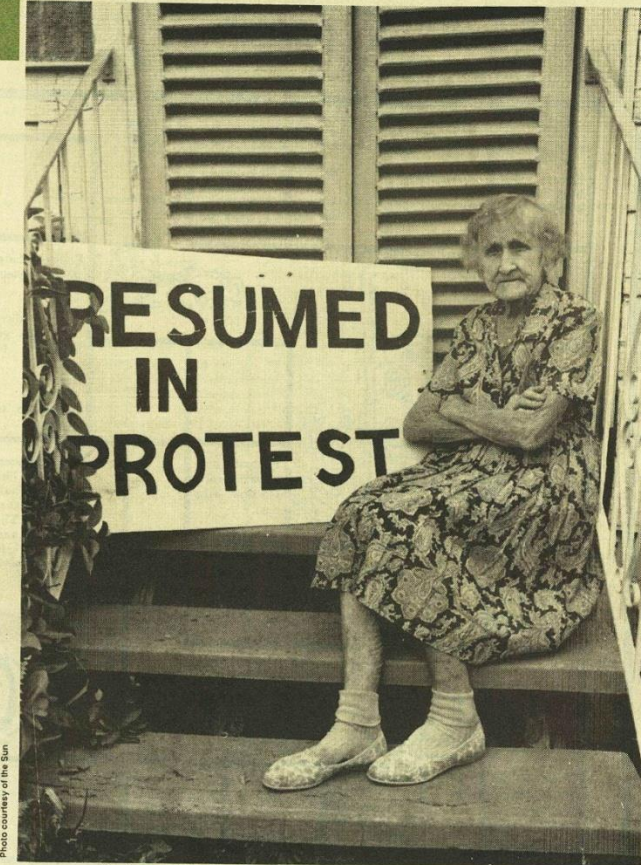 RESUMED
IN
PROTEST
Photo courtesy of the Sun